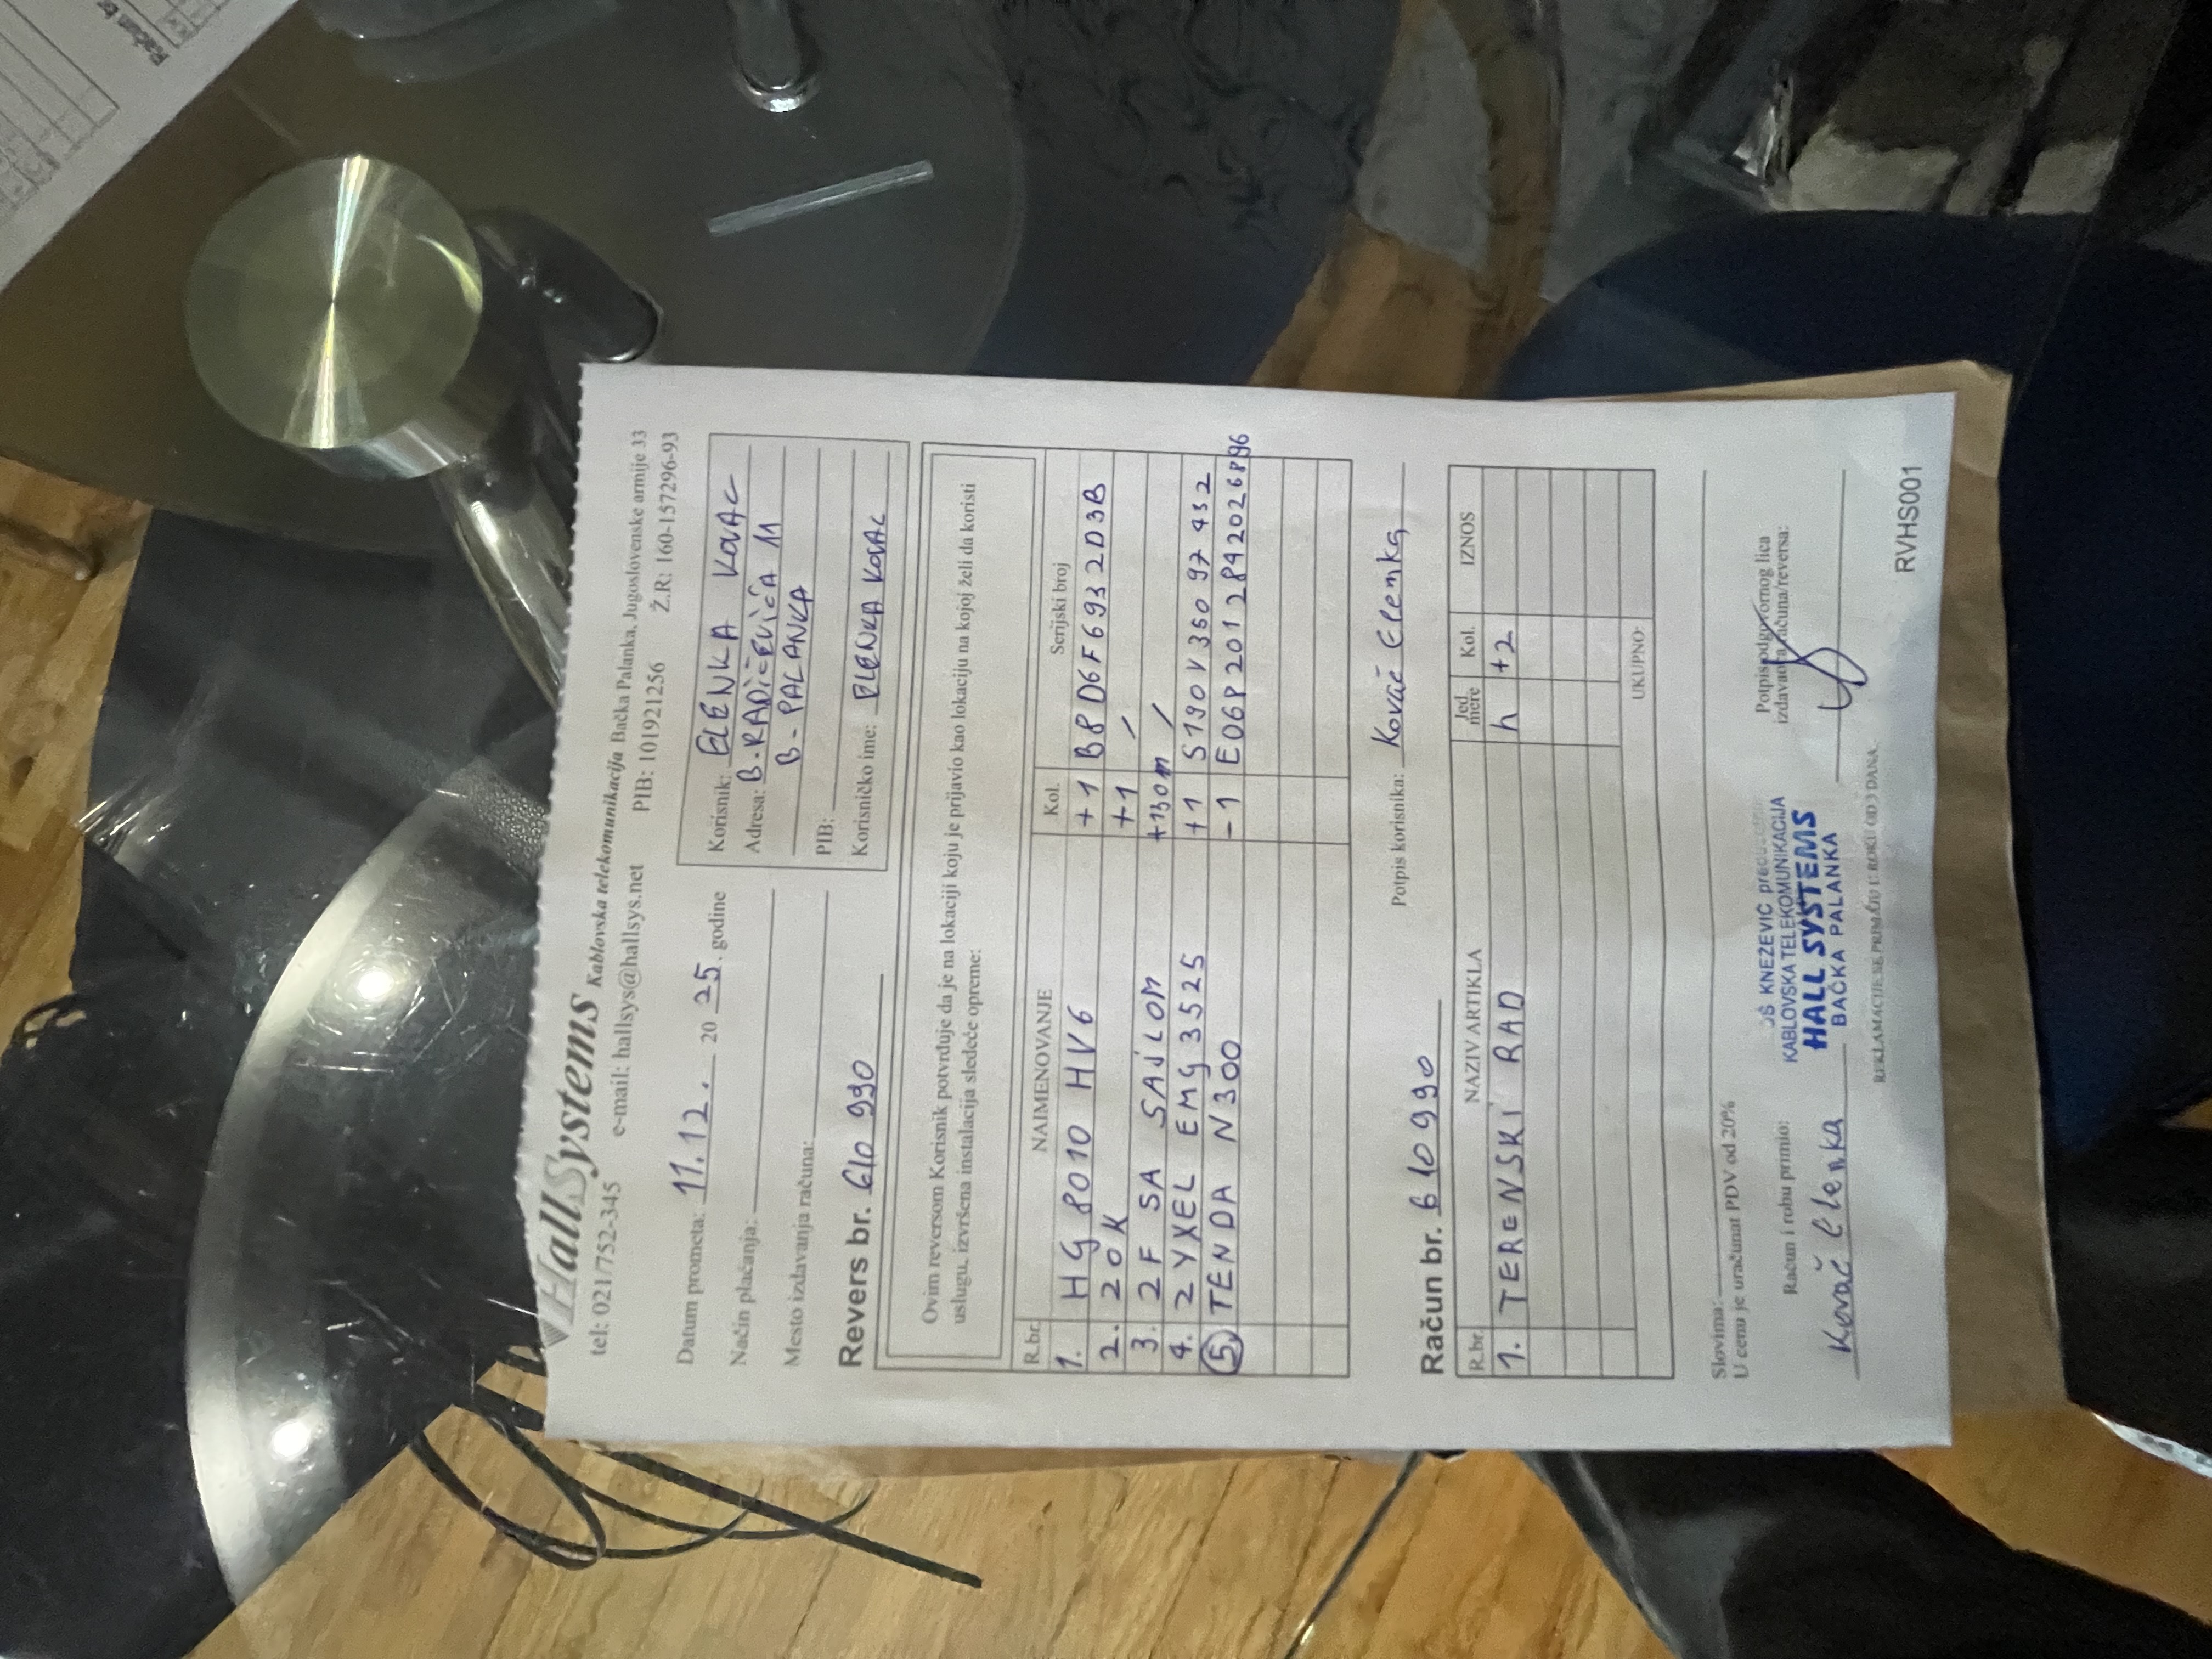 HallSystems Kablovska telekomunikacija Bačka Palanka, Jugoslovenske armije 33
tel: 021/752-345 e-mail: hallsys@hallsys.net PIB: 101921256 Ž.R: 160-157296-93
Datum prometa: 11.12. 20 25. godine
Način plaćanja:
Mesto izdavanja računa:
Revers br. 610 990
Korisnik: ELENKA KOVAC
Adresa: B. RADIČEVIĆA 11
B. PALANKA
PIB:
Korisničko ime: ELENKA KOVAC
Ovim reversom Korisnik potvrđuje da je na lokaciji koju je prijavio kao lokaciju na kojoj želi da koristi
uslugu, izvršena instalacija sledeće opreme:
R.br. NAIMENOVANJE Kol. Serijski broj
1. HG 8010 HV6 +1 B8D6F6932D3B
2. ZOK +1 /
3. 2F SA SAJLOM +130m /
4. ZYXEL EMG3525 +1 S190V36097452
5. TENDA N300 -1 E0682012842026896
Potpis korisnika: Kovač Elenka
Račun br. 610990
R.br. NAZIV ARTIKLA Jed. mere Kol. IZNOS
1. TERENSKI RAD h +2
UKUPNO:
Slovima:
U cenu je uračunat PDV od 20%
Račun i robu primio:
Kovač Elenka
KNEŽEVIĆ
KABLOVSKA TELEKOMUNIKACIJA
HALL SYSTEMS
BAČKA PALANKA
Potpis odgovornog lica
izdavaoca računa/reversa:
REKLAMACIJE SE PRIMAJU U ROKU OD 3 DANA.
RVHS001